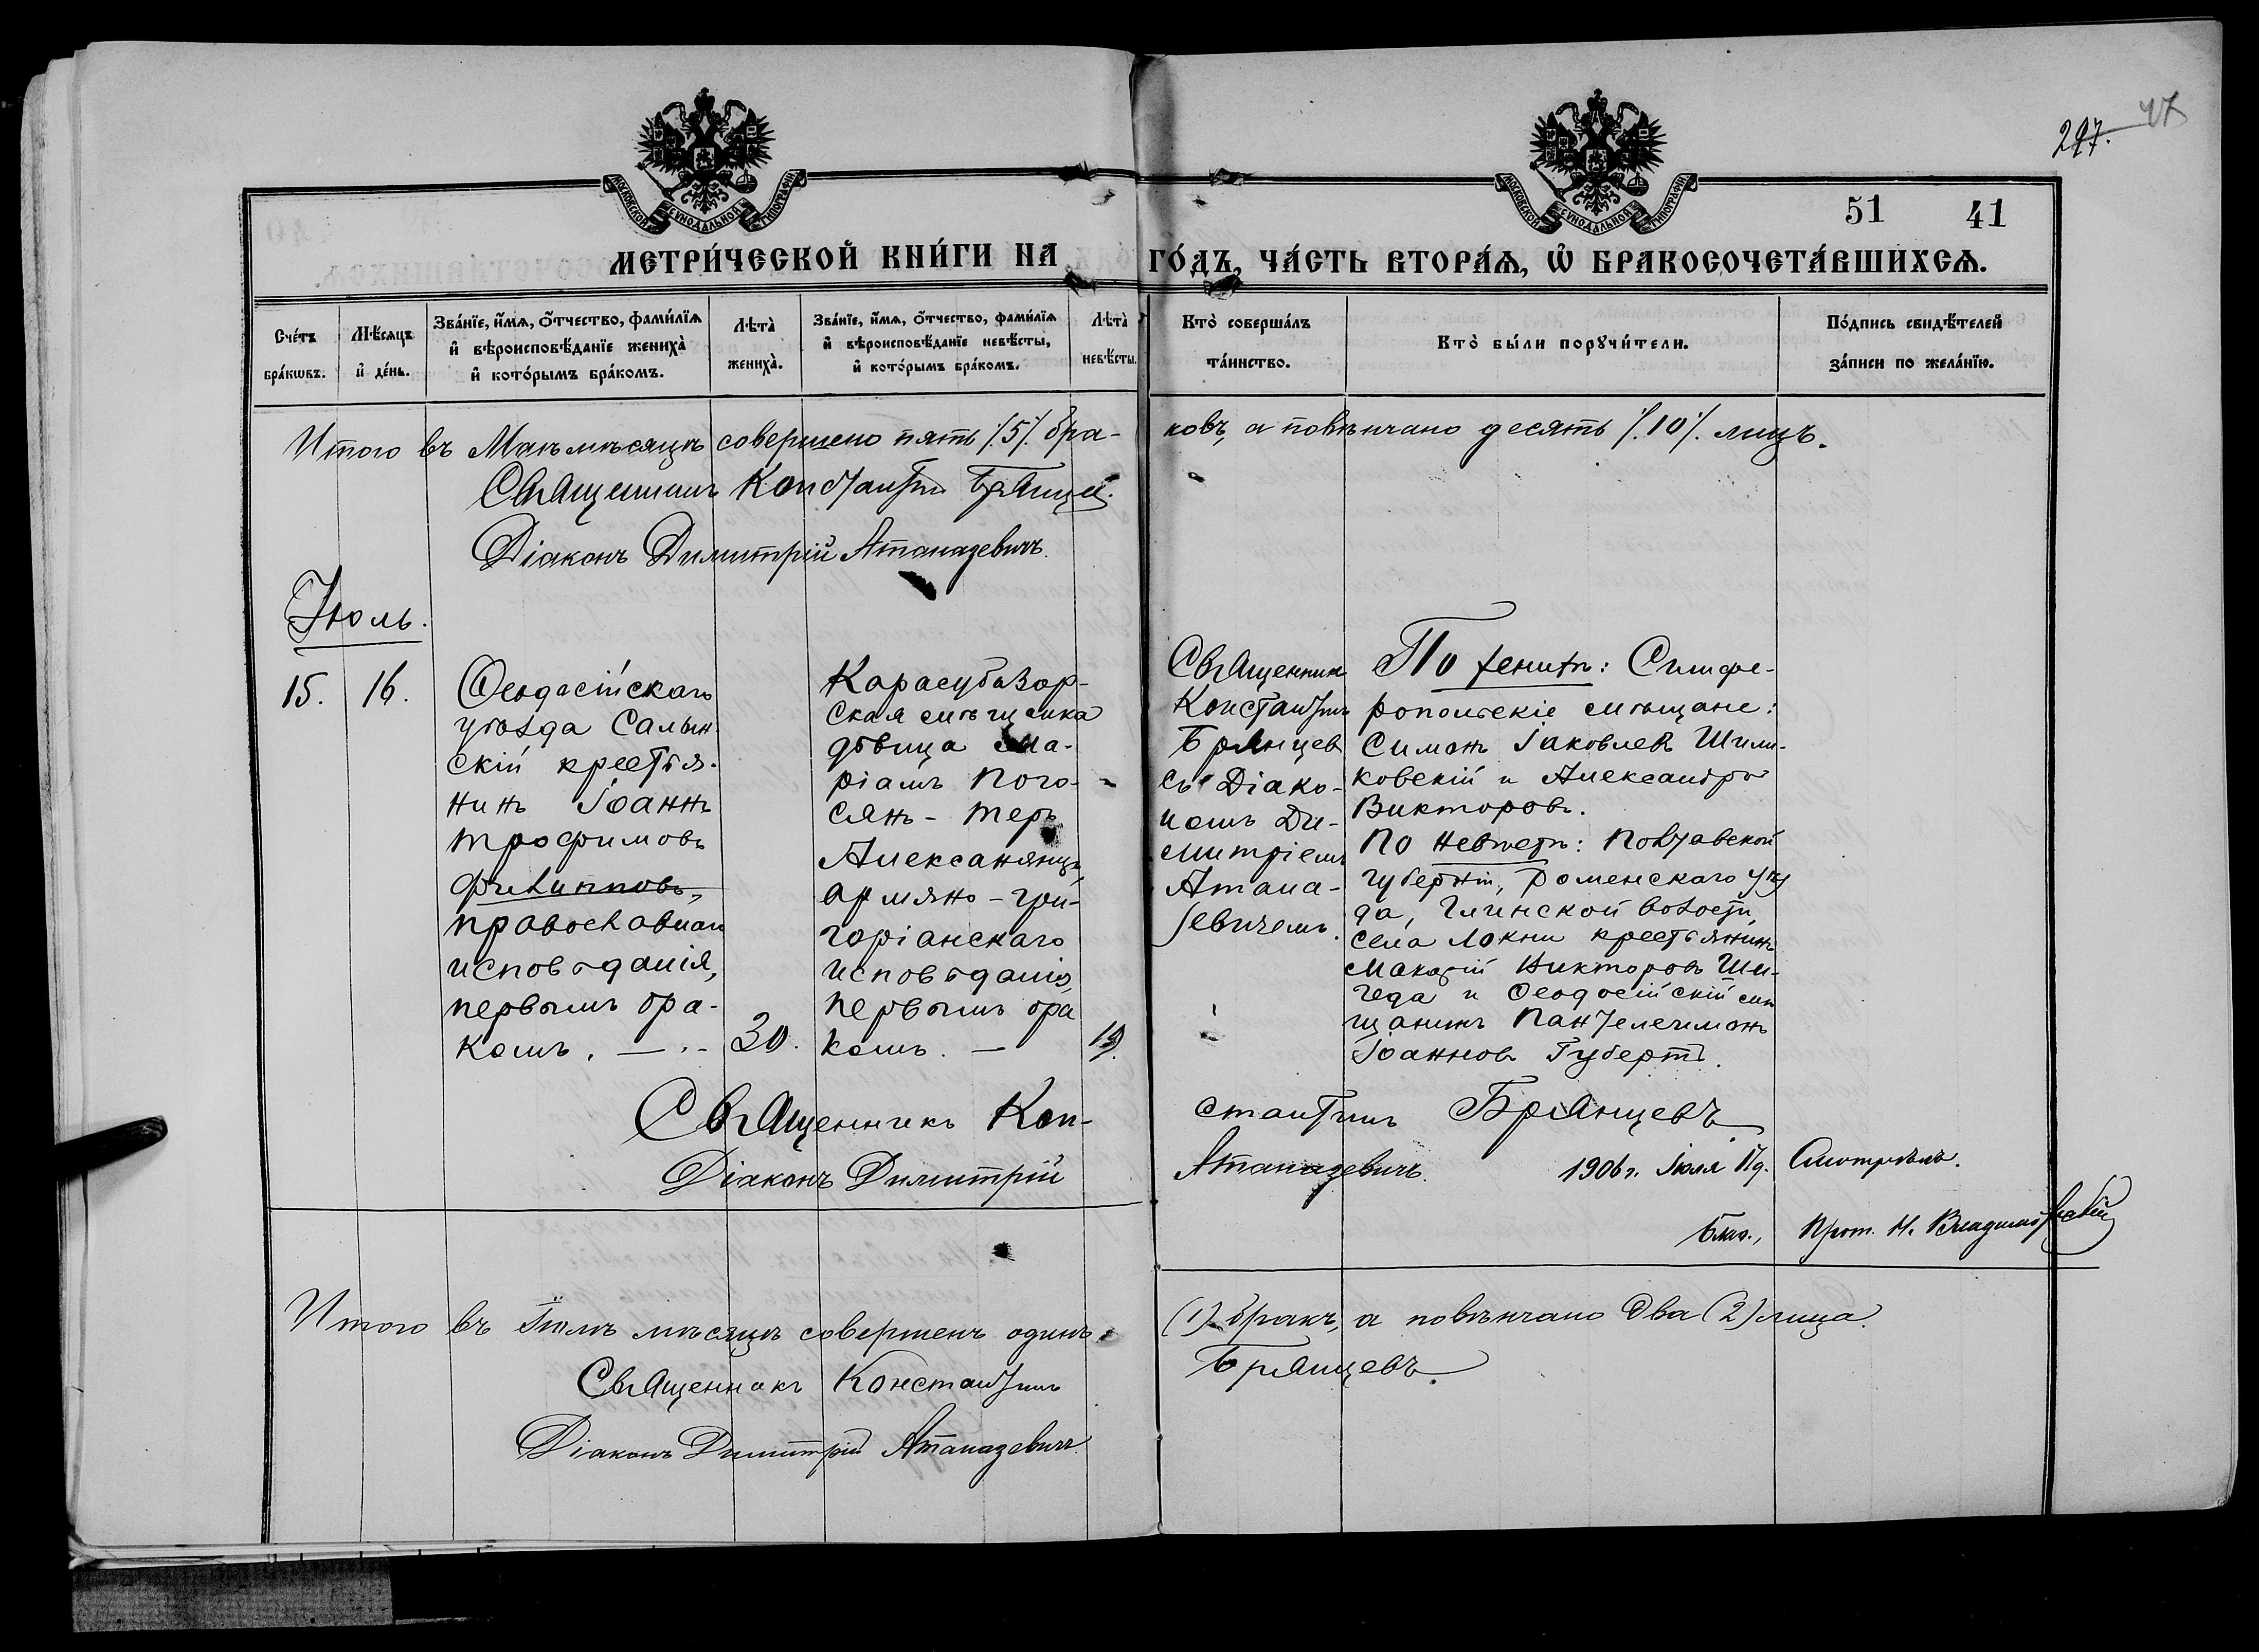 297. 47
МОСКОВСКОЙ СѴНОДАЛЬНОЙ ТИПОГРАФІИ
МОСКОВСКОЙ СѴНОДАЛЬНОЙ ТИПОГРАФІИ
51 41
МЕТРИ́ЧЕСКОЙ КНИ́ГИ НА ГО́ДЪ, ЧА́СТЬ ВТОРА́Ѧ, Ѽ БРАКОСОЧЕТА́ВШИХСѦ.
Сче́тъ
бра́кωвъ.
Мѣ́сѧцъ
и҆ де́нь.
Зва́нїе, и҆́мѧ, ѻ҆́тчество, фами́лїѧ
и҆ вѣроисповѣ́данїе жениха̀
и҆ кото́рымъ бра́комъ.
Лѣта̀
жениха̀.
Зва́нїе, и҆́мѧ, ѻ҆́тчество, фами́лїѧ
и҆ вѣроисповѣ́данїе невѣ́сты,
и҆ кото́рымъ бра́комъ.
Лѣта̀
невѣ́сты.
Кто̀ соверша́лъ
та́инство.
Кто̀ бы́ли порꙋчи́тели.
По́дпись свидѣ́телей
за́писи по жела́нїю.
Итого въ Маѣ мѣсяцѣ совершено пять /.5/. бра-
ковъ, а повѣнчано десять /.10/. лицъ.
Священникъ Константинъ Брянцевъ.
Діаконъ Димитрій Атаназевичъ.
Іюль.
15.
16.
Ѳеодосійскаго
уѣзда Салын-
скій крестья-
нинъ Іоаннъ
Трофимовъ
Филипповъ,
православнаго
исповѣданія,
первымъ бра-
комъ. —
30.
Карасубазар-
ская мѣщанка
дѣвица Ма-
ріамъ Пого-
сянъ-Теръ
Александянцъ,
армяно-гри-
горіанскаго
исповѣданія,
первымъ бра
комъ. —
19.
Священникъ
Константинъ
Брянцевъ
съ Діако-
номъ Ди-
митріемъ
Атана-
зевичемъ.
По женихѣ: Симфе-
ропольскіе мѣщане:
Симонъ Іаковлевъ Шим-
ковскій и Александръ
Викторовъ.
По невѣстѣ: Полтавской
губерніи, Роменскаго уѣз
да, Глинской волости,
села Локни крестьянинъ
Макарій Викторовъ Ше-
геда и Ѳеодосійскій мѣ
щанинъ Пантелеимонъ
Іоанновъ Губертъ.
Священникъ Кон-
стантинъ Брянцевъ
Діаконъ Димитрій
Атаназевичъ.
1906 г. Іюля 17 д. Смотрѣлъ.
Благ., Прот. Н. Владимірскій
Итого въ Іюлѣ мѣсяцѣ совершенъ одинъ
(1) бракъ, а повѣнчано два (2) лица.
Священникъ Константинъ
Брянцевъ.
Діаконъ Димитрій Атаназевичъ.